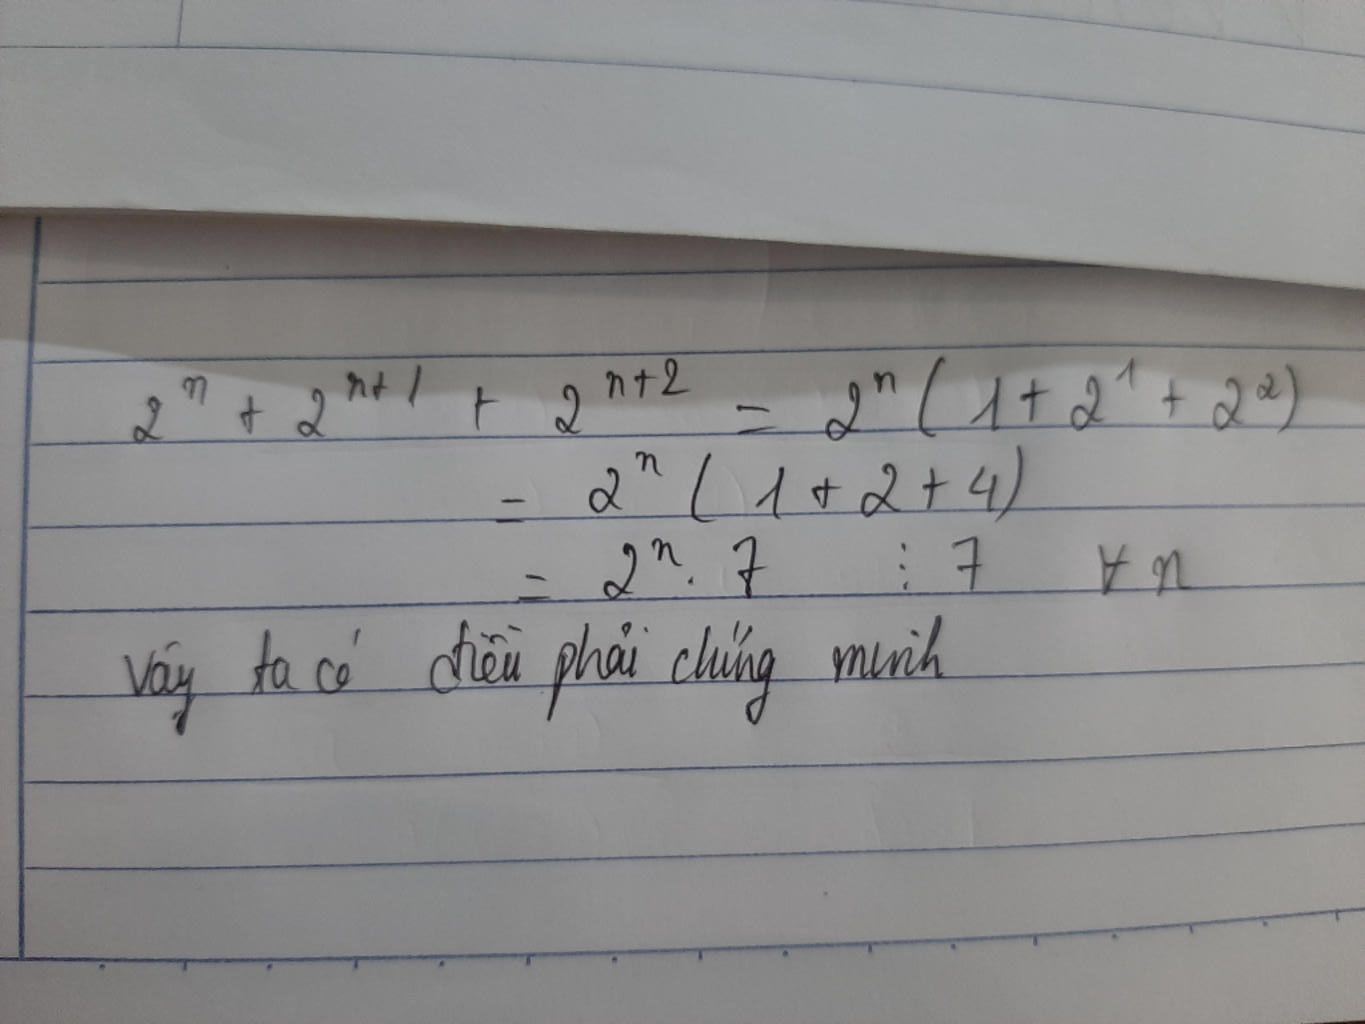 2^n + 2^{n+1} + 2^{n+2} = 2^n ( 1 + 2^1 + 2^2 )
= 2^n ( 1 + 2 + 4 )
= 2^n . 7 ⋮ 7 ∀ n
Vậy ta có điều phải chứng minh